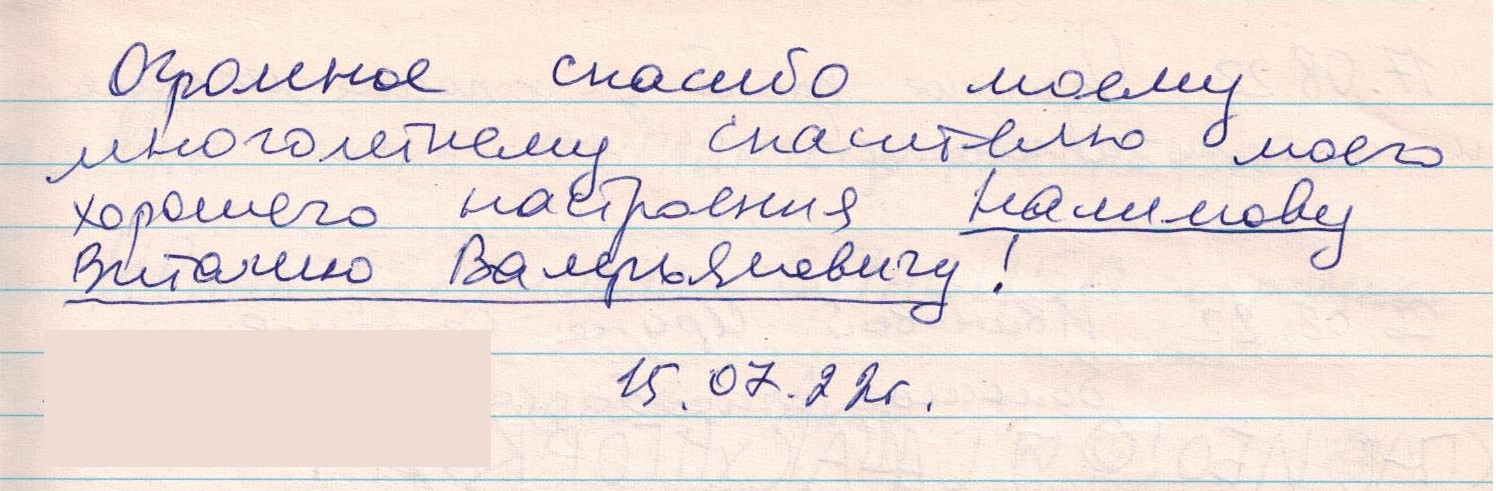 Огромное спасибо моему
многолетнему спасителю моего
хорошего настроения Налимову
Виталию Валерьяновичу!
15.07.22г.